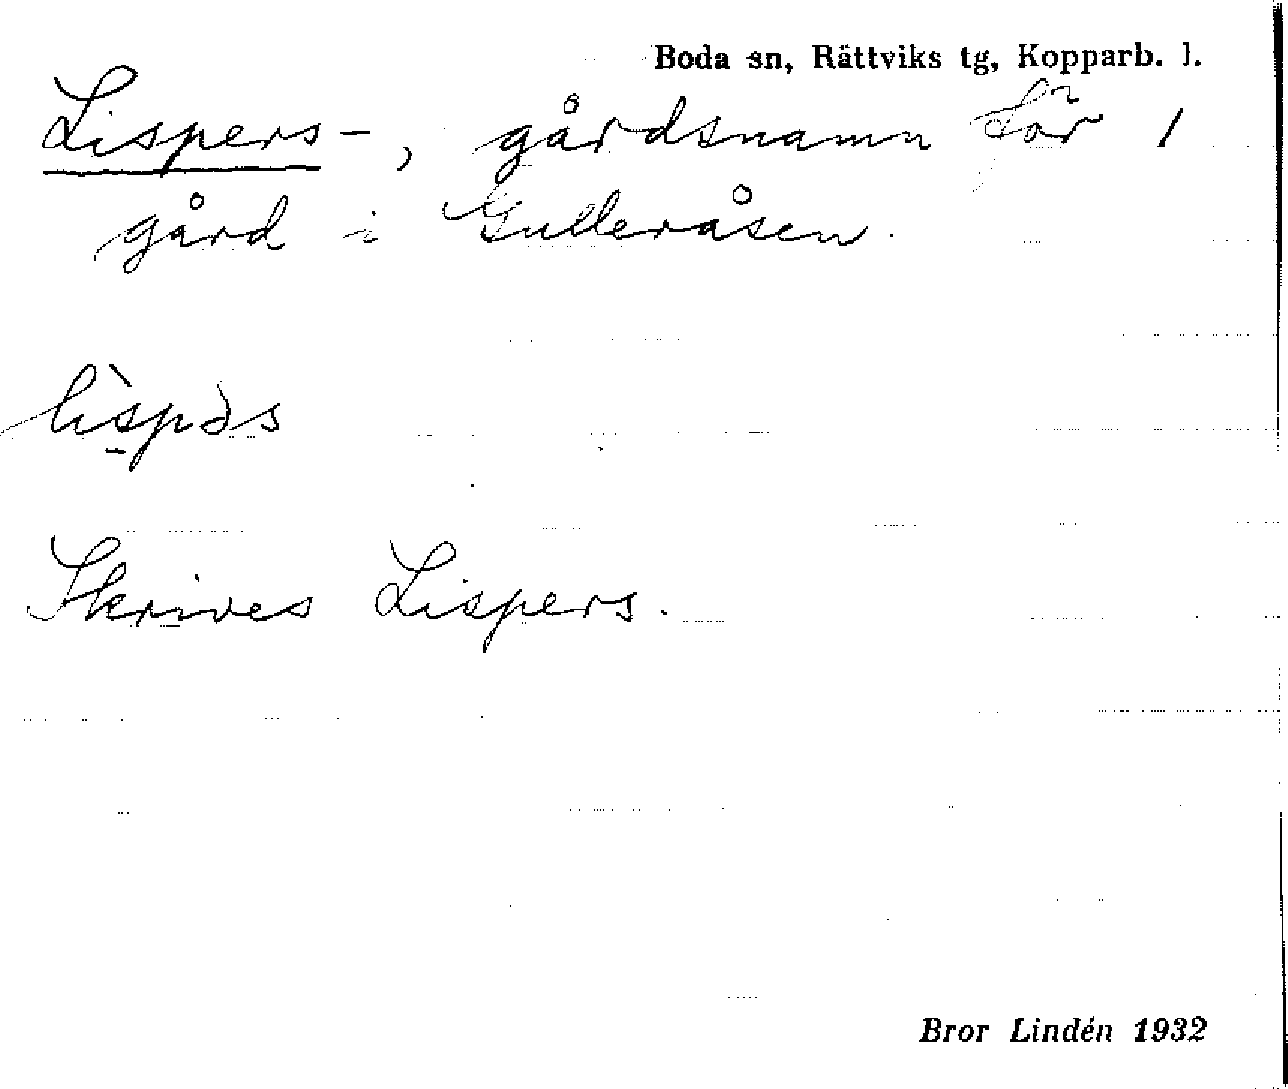 Boda sn, Rättviks tg, Kopparb. l.
Lispers-, gårdsnamn för 1
gård i Gulleråsen.
Skrives Lispers.
Bror Lindén 1932